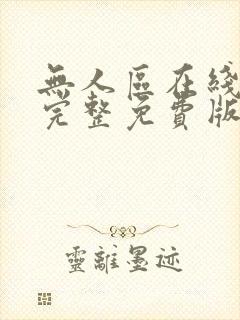 無人區在綫
完整免費版
靈離墨迹